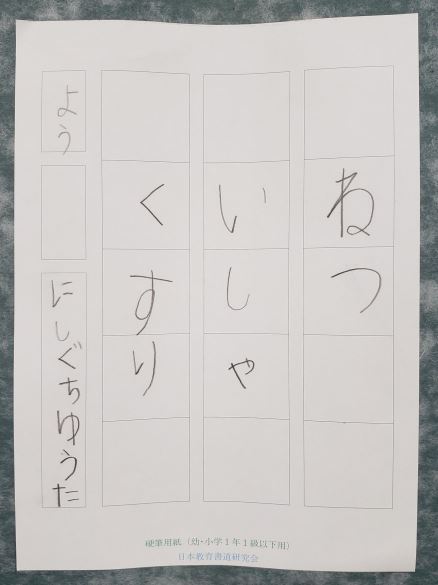 ねつ
いしゃ
くすり
よう
にしぐちゆうた
硬筆用紙（幼・小学1年1級以下用）
日本教育書道研究会